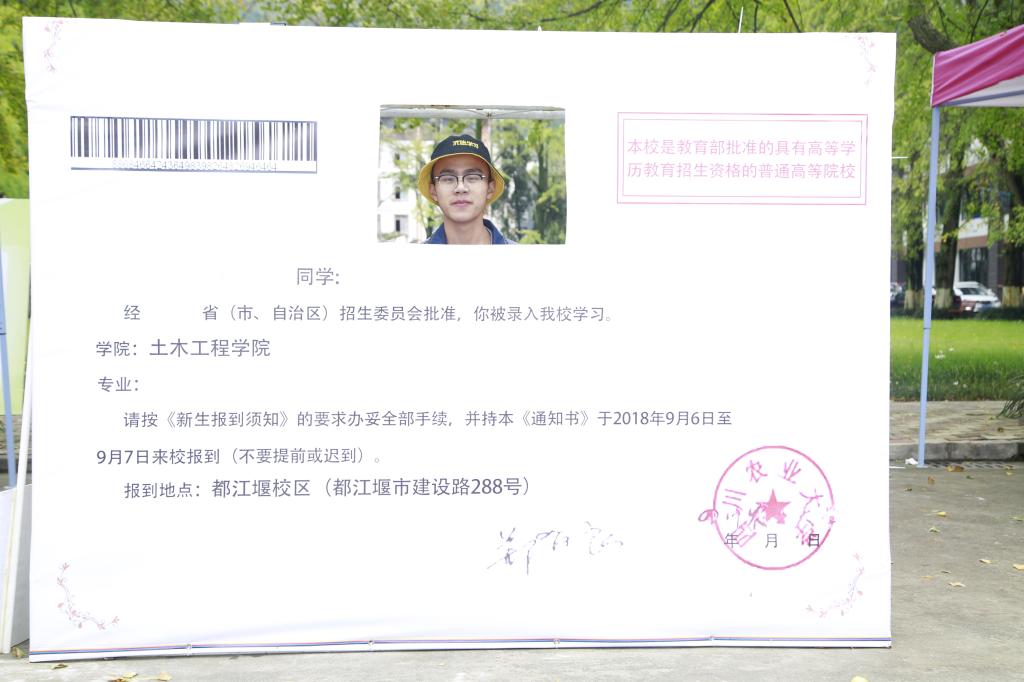 本校是教育部批准的具有高等学
历教育招生资格的普通高等院校
同学:
经 省（市、自治区）招生委员会批准，你被录入我校学习。
学院：土木工程学院
专业：
请按《新生报到须知》的要求办妥全部手续，并持本《通知书》于2018年9月6日至
9月7日来校报到（不要提前或迟到）。
报到地点：都江堰校区（都江堰市建设路288号）
川农业大
年 月 日